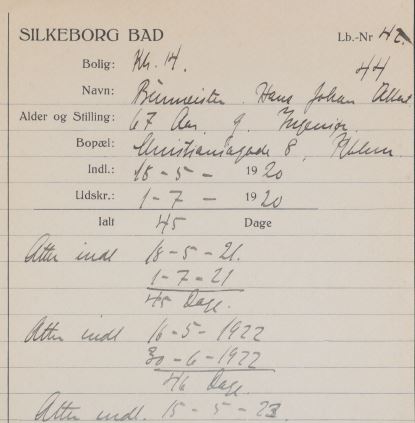 SILKEBORG BAD Lb.-Nr 42
44
Bolig: Kb. 14.
Navn: Burmeister. Hans Johan
Alder og Stilling: 67 Aar, g. Ingeniør
Bopæl: Christiansgade 8, Kbhvn.
Indl.: 18 - 5 - 1920
Udskr.: 1 - 7 - 1920
Ialt 45 Dage
Atter indl 18 - 5 - 21.
1 - 7 - 21
45 Dage.
Atter indl 16 - 5 - 1922
30 - 6 - 1922
46 Dage.
Atter indl. 15 - 5 - 23.